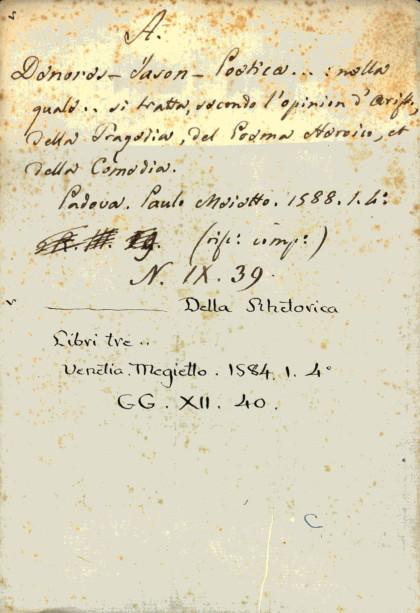 A.
Denores - Jason - Poetica... : nella
quale.. si tratta, secondo l'opinion d'Arist.,
della Tragedia, del Poema Heroico, et
della Comedia.
Padova. Paulo Meietto. 1588. 1. 4°
(rife: comp:)
N. IX. 39.
Della Rhetorica
Libri tre..
Venetia. Megietto. 1584. 1. 4°
GG. XII. 40.
C